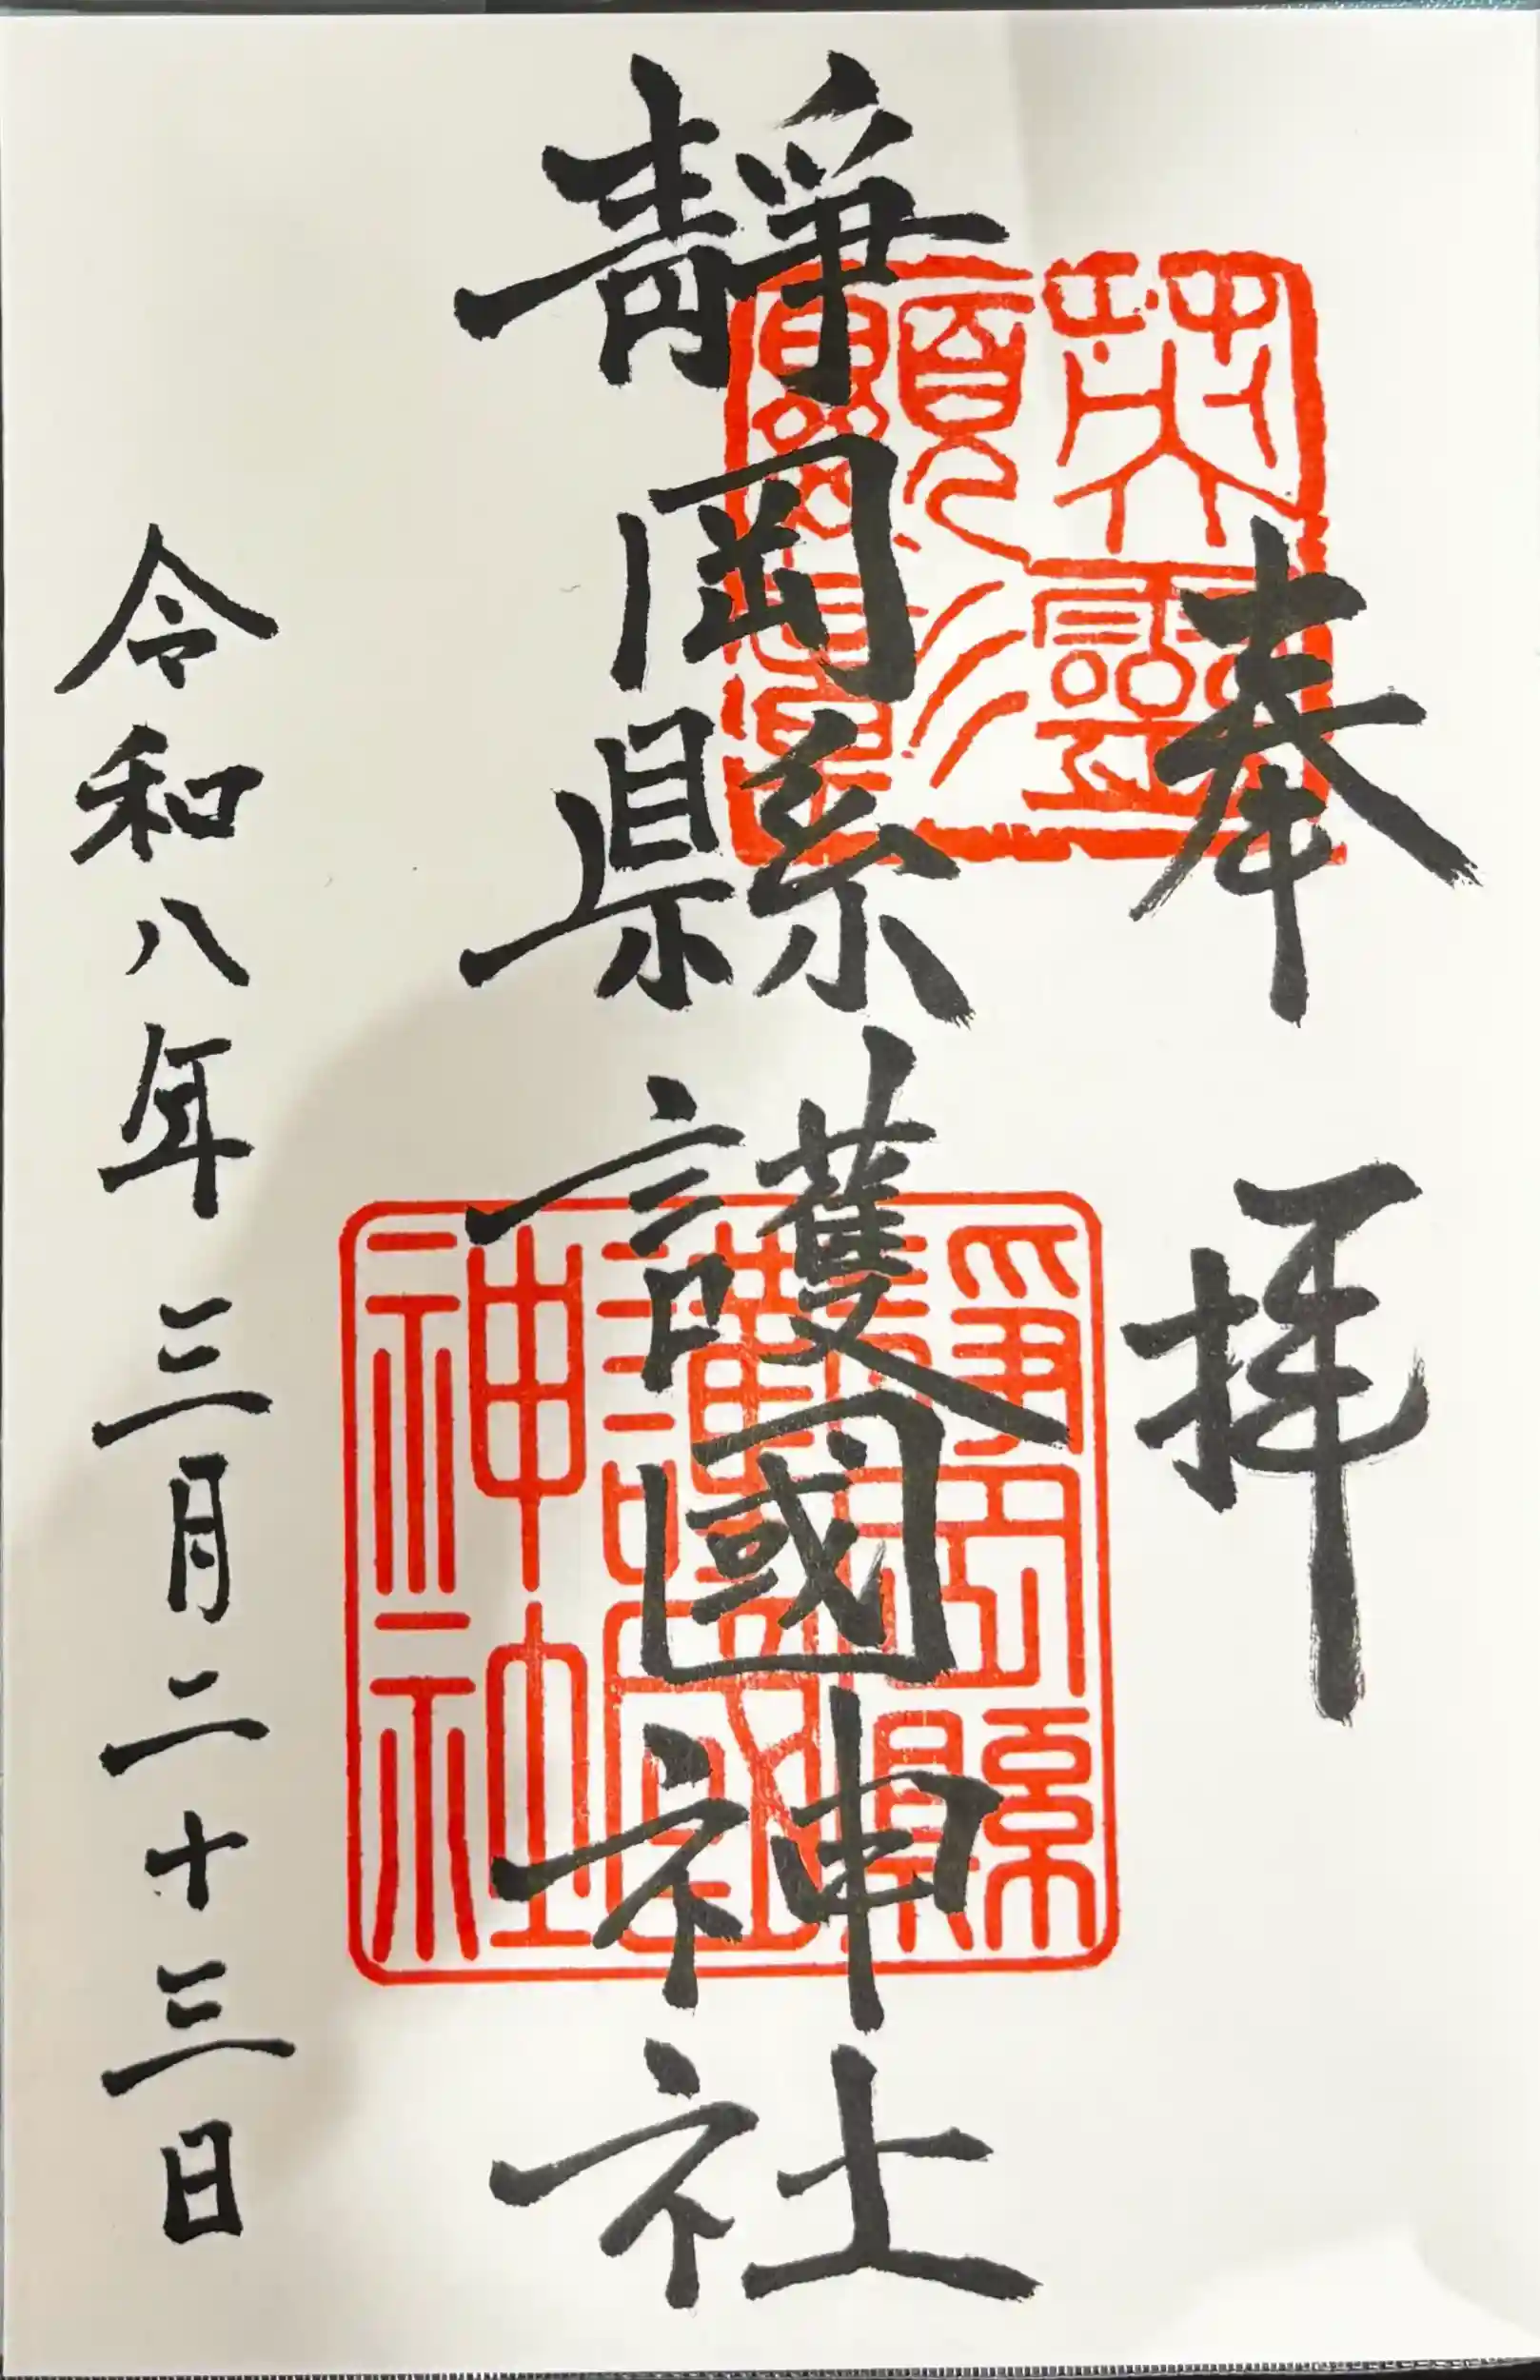 奉拝
靜岡縣護國神社
令和八年三月二十三日
英靈顕彰
靜岡縣
護國
神社